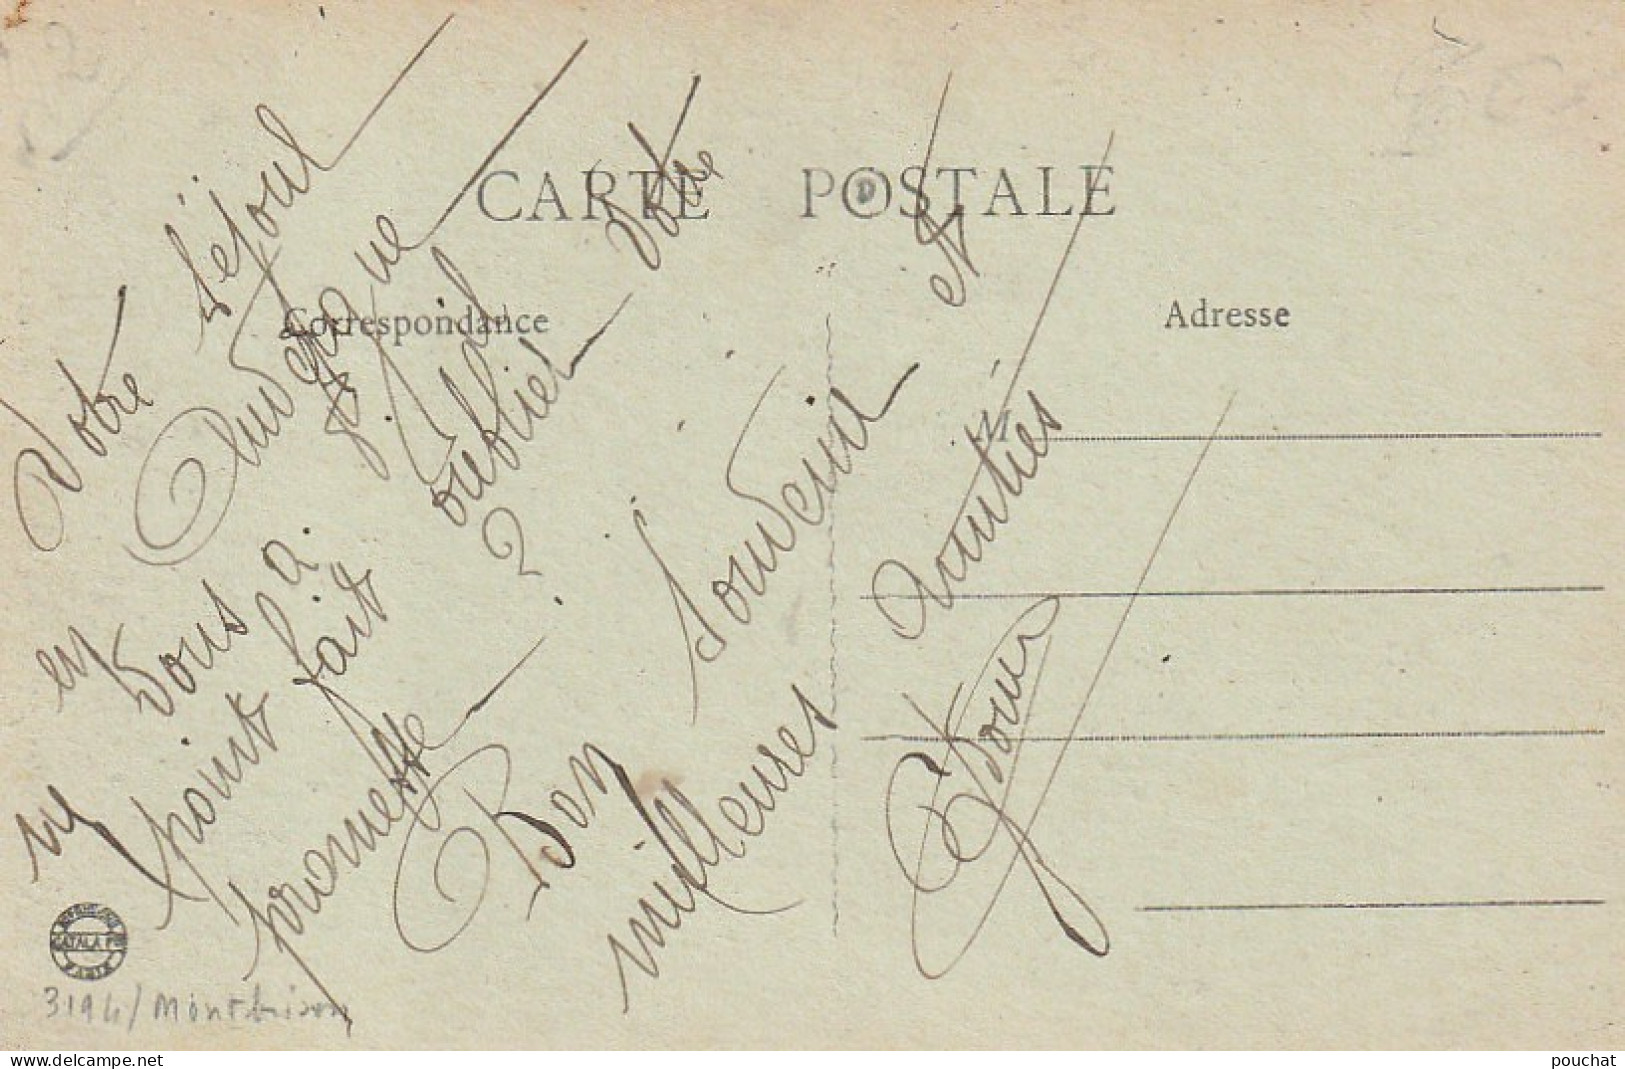 CARTE POSTALE
Correspondance
Adresse
M
Votre séjour
en Auvergne
ne vous a
point fait oublier votre
promesse ?
Bon souvenir et
meilleures amitiés
IMPRIMERIES
CATALA Frs
PARIS
3194/Montbrison
pouchat
delcampe.net